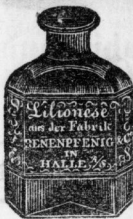 Lilionese
aus der Fabrik
RENENPFENIG
IN
HALLE a/S.